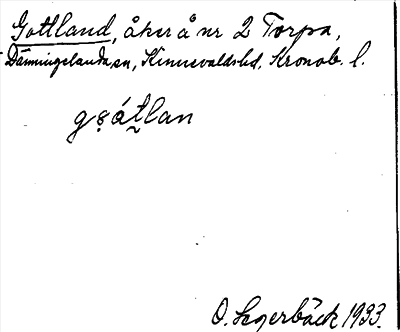 Gottland, åker å nr 2 Torpa,
Dänningelanda sn, Kinnevaldshd, Kronob. l.
go̤át̰lan
O. Segerbäck 1933.